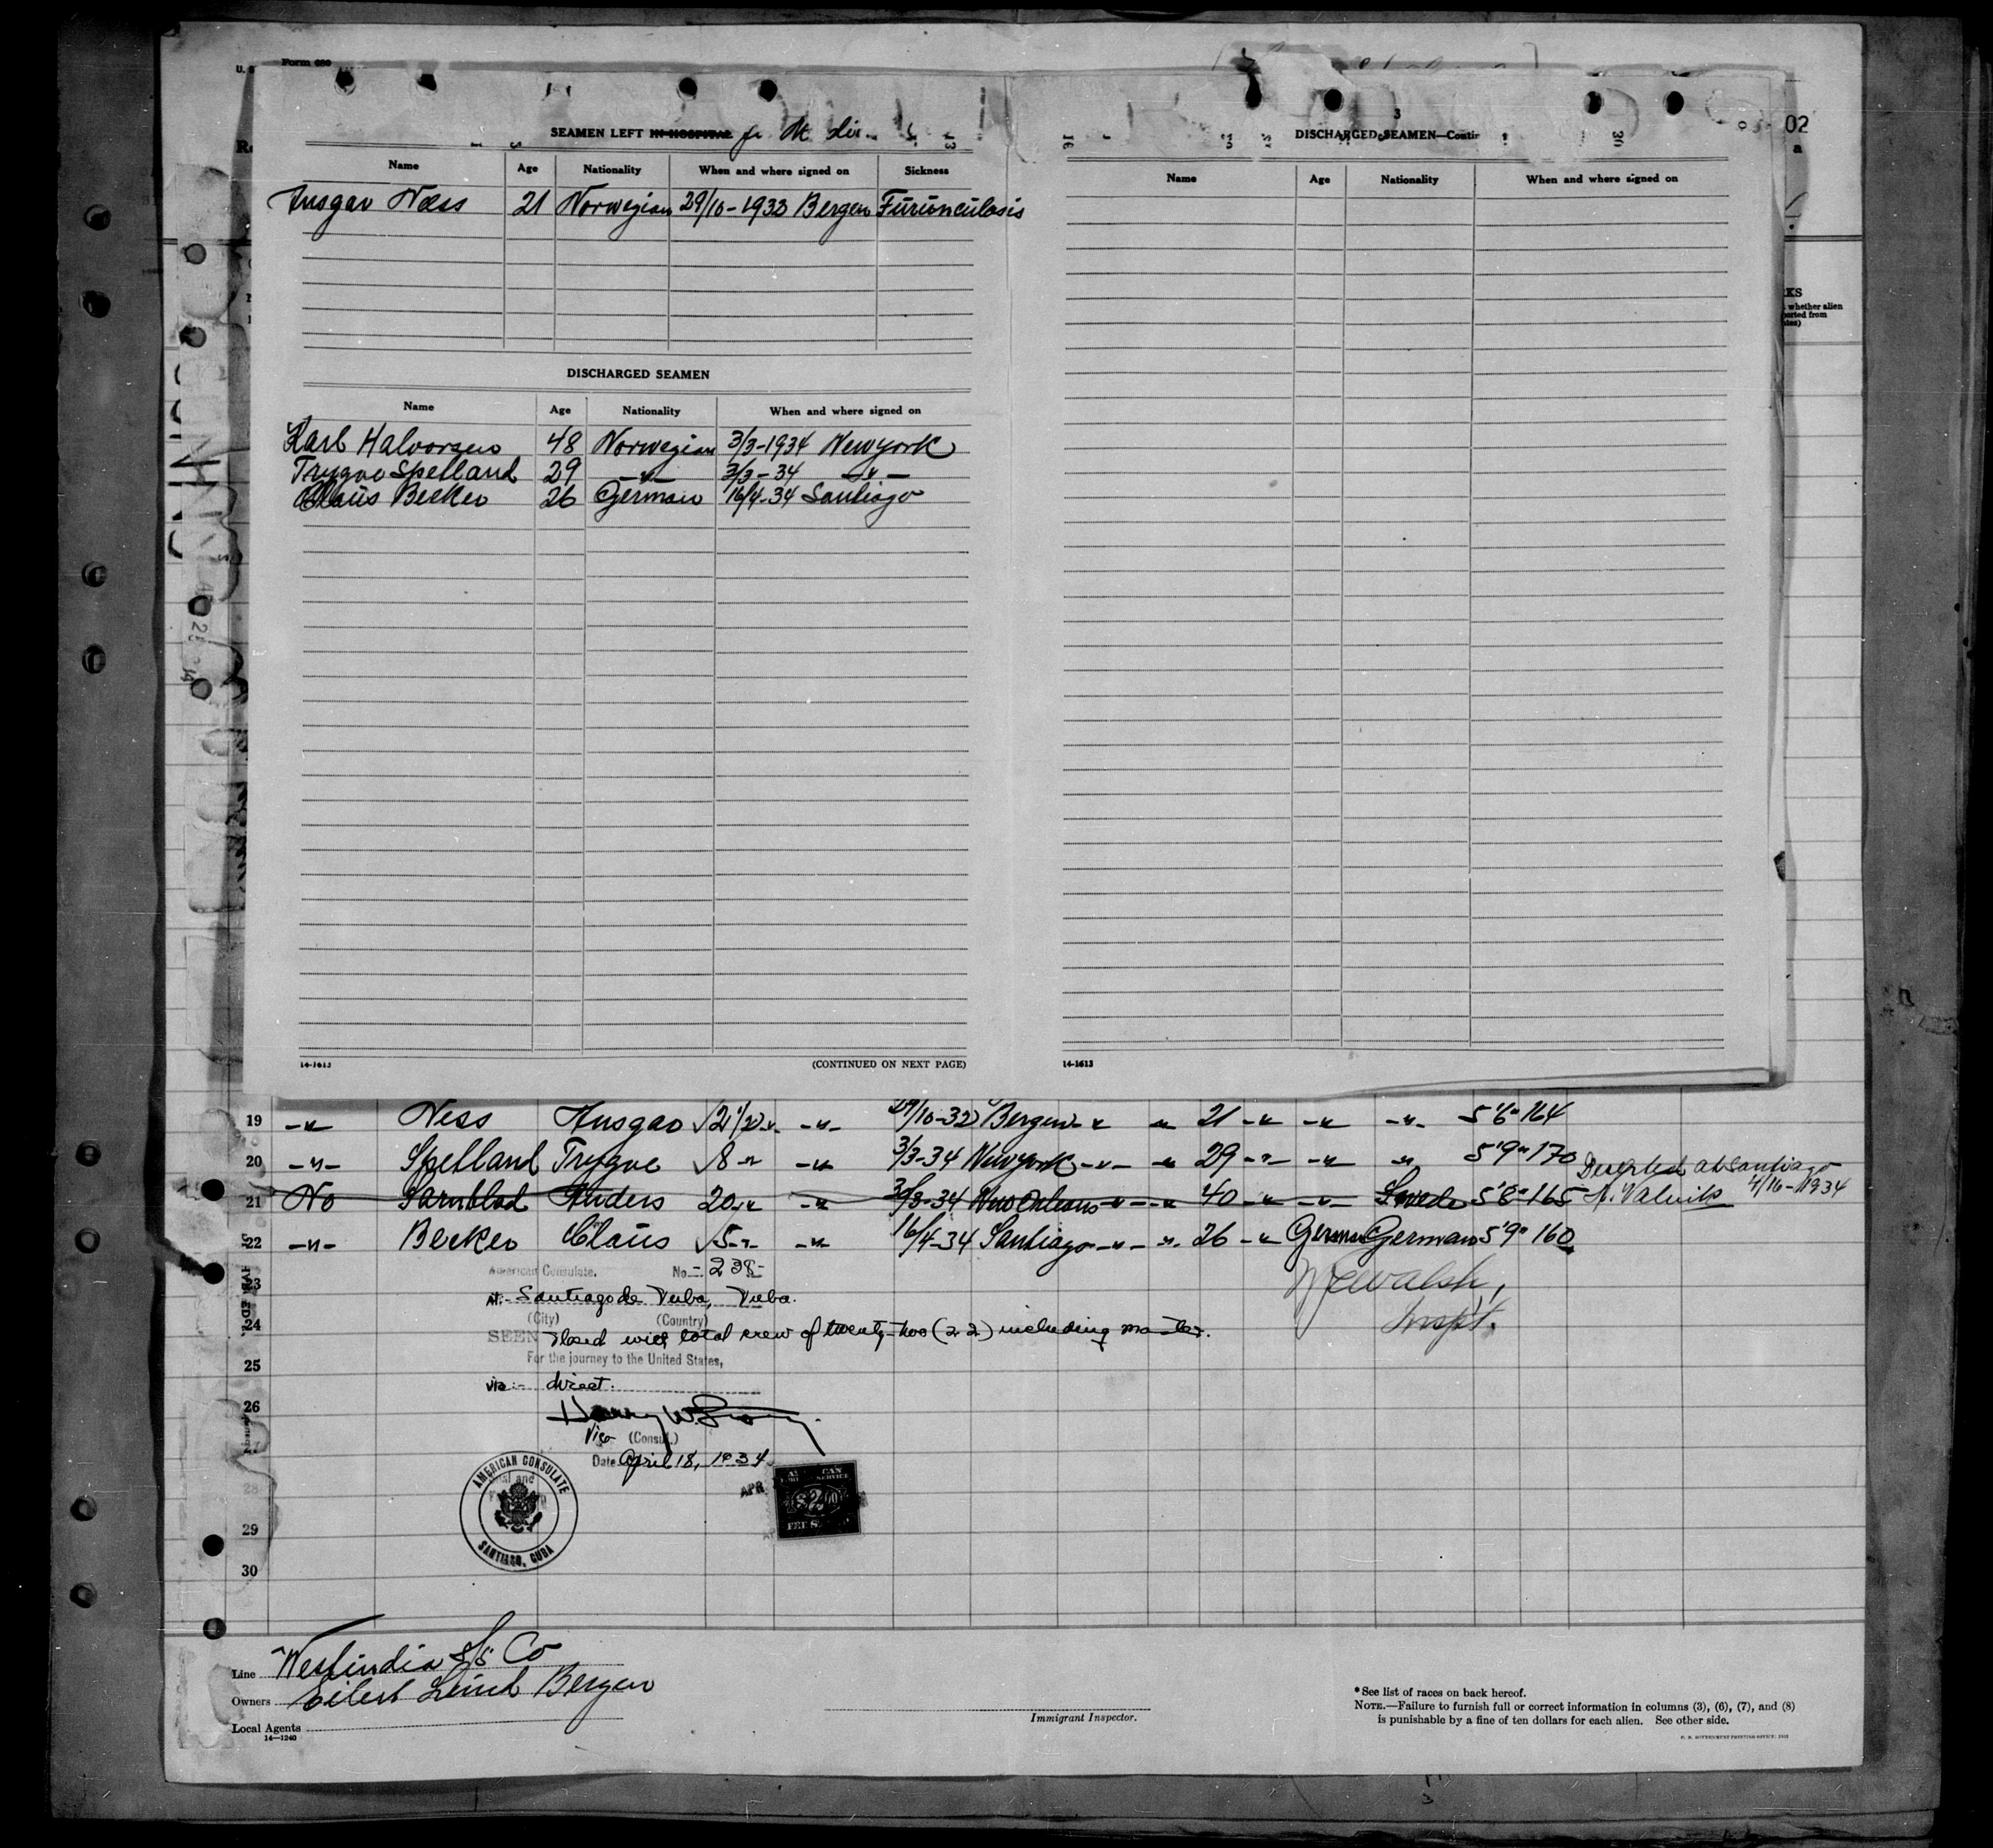 Form 680
SEAMEN LEFT IN HOSPITAL
Name Age Nationality When and where signed on Sickness
Ansgar Næss 21 Norwegian 29/10-1933 Bergen Furunculosis
DISCHARGED SEAMEN
Name Age Nationality When and where signed on
Karl Halvorsen 48 Norwegian 3/3-1934 New york
Trygve Spelland 29 -"- 3/3-34 -"-
Claus Becker 26 German 16/4-34 Santiago
14-1613
(CONTINUED ON NEXT PAGE)
3
DISCHARGED SEAMEN—Contin
Name Age Nationality When and where signed on
14-1613
02
a
KS
whether alien
ported from
19 -"- Ness Ansgar 2 1/2 " -"- 29/10-32 Bergen -"- " 21 -" -"- -"- 5'6" 164
20 -"- Spelland Trygve 8 -"- -"- 3/3-34 New york -"- -" 29 -"- -"- " 5'9" 170
Deserted at Santiago
4/16-1934
21 No Sarnblad Anders 20 " -" 30/3-34 New Orleans -"- -" 40 -" -"- Swede 5'8" 165
22 -"- Becker Claus 5 -"- -"- 16/4-34 Santiago -"- -"- 26 -" German German 5'9" 160
American Consulate. No. -238-
23
At:- Santiago de Cuba, Cuba.
(City) (Country)
24
SEEN closed with total crew of twenty-two (22) including master.
Insp't.
25
For the journey to the United States,
via:- direct.
26
Vice (Consul)
Date April 18, 1934
AMERICAN CONSULATE
SANTIAGO, CUBA
APR
$2.00
28
29
30
Line Westindia S/S Co
Owners Eilert Lund Bergen
Local Agents
14—1240
Immigrant Inspector.
*See list of races on back hereof.
NOTE.—Failure to furnish full or correct information in columns (3), (6), (7), and (8)
is punishable by a fine of ten dollars for each alien. See other side.